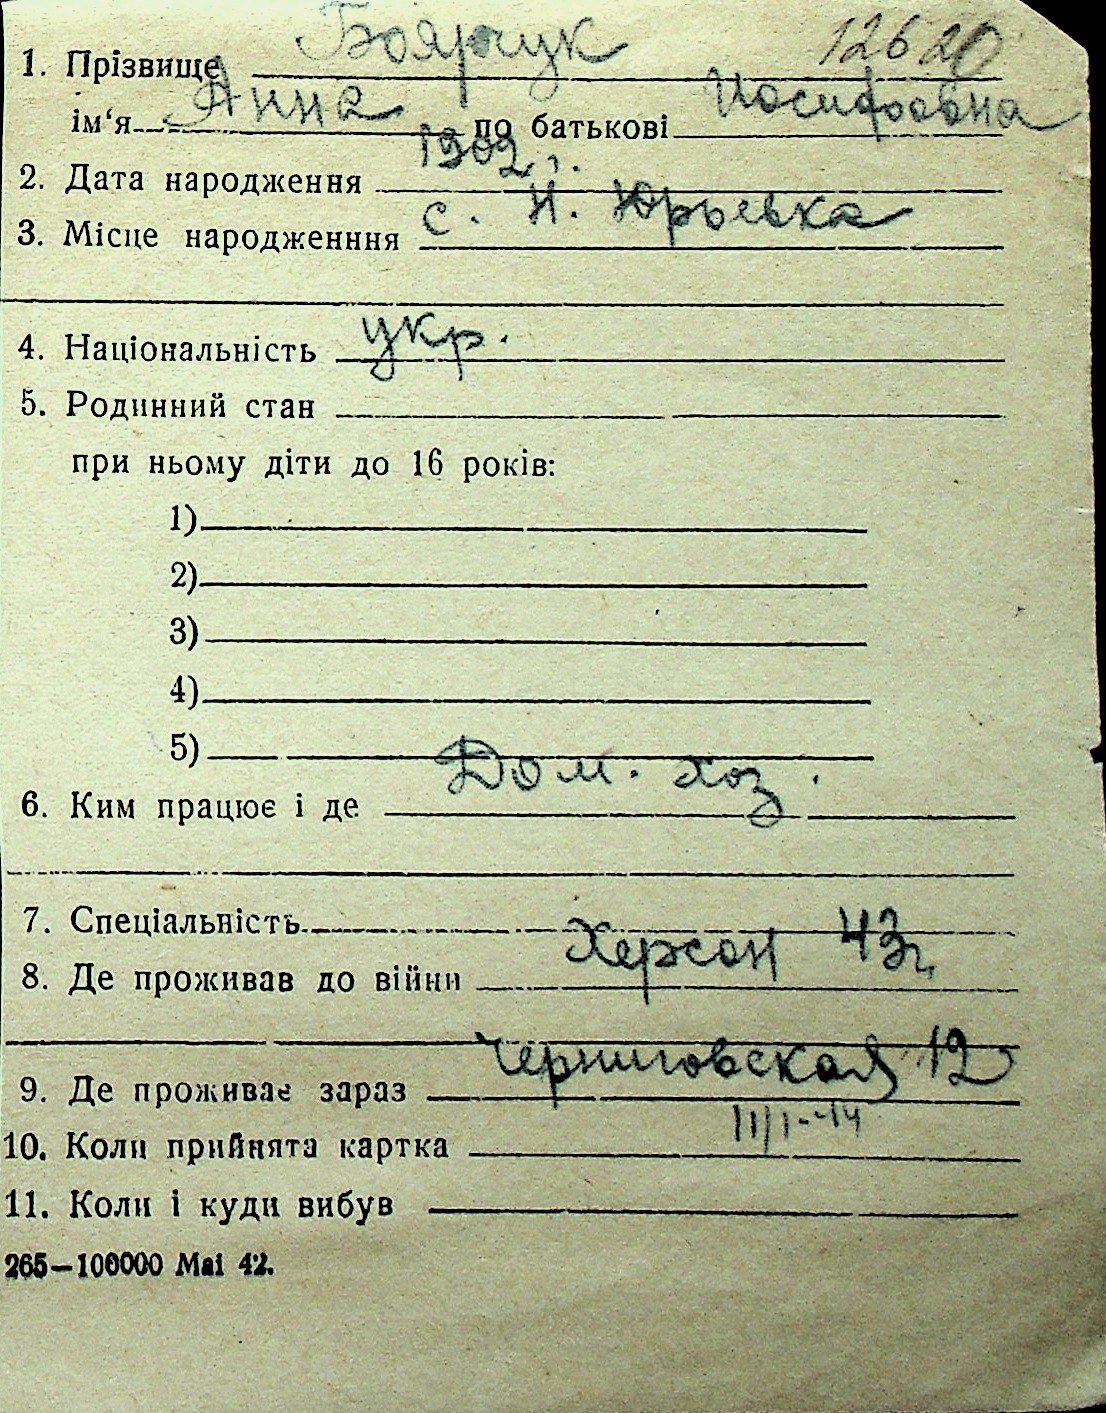 Боярчук 12620
1. Прізвище
Анна Иосифовна
ім‘я по батькові
1902 г.
2. Дата народження
с. Н. Юрьевка
3. Місце народженння
укр.
4. Національність
5. Родинний стан
при ньому діти до 16 років:
1)
2)
3)
4)
5)
Дом. хоз.
6. Ким працює і де
7. Спеціальність
Херсон 43г.
8. Де проживав до війни
Черниговская 12
9. Де проживає зараз
11/1-44
10. Коли прийнята картка
11. Коли і куди вибув
265—100000 Маі 42.